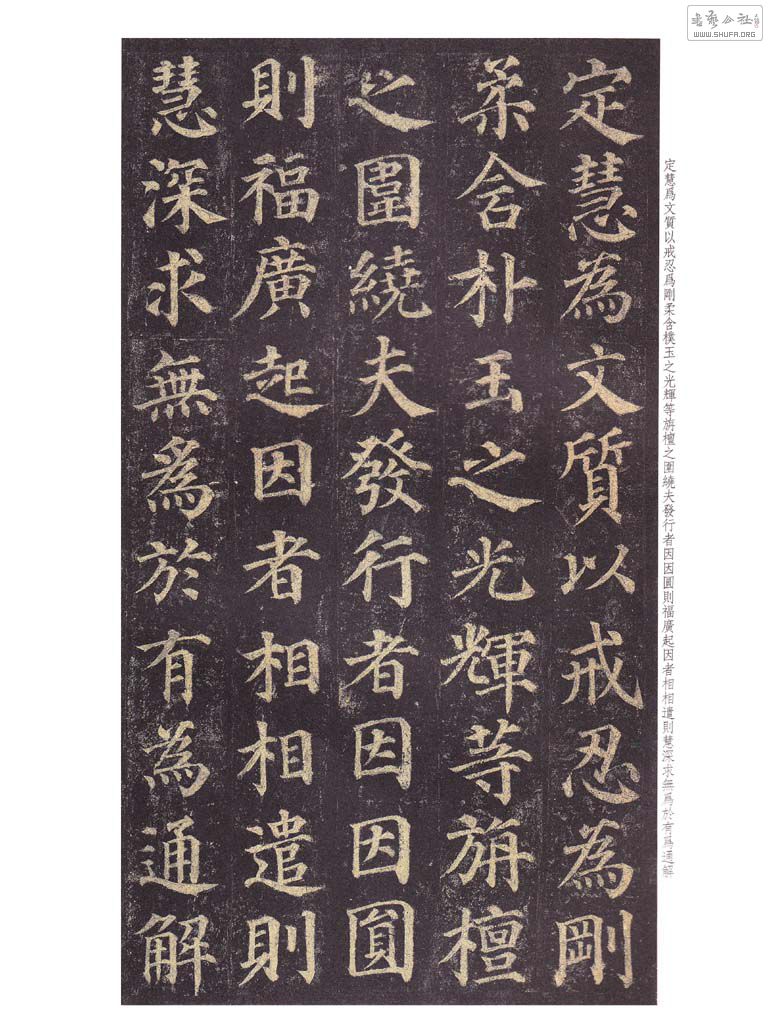 書藝公社
WWW.SHUFA.ORG
定慧為文質以戒忍為剛
柔含朴玉之光輝等旃檀
之圍繞夫發行者因因圓
則福廣起因者相相遣則
慧深求無為於有為通解
定慧爲文質以戒忍爲剛柔含樸玉之光輝等旃檀之圍繞夫發行者因因圓則福廣起因者相相遣則慧深求無爲於有爲通解